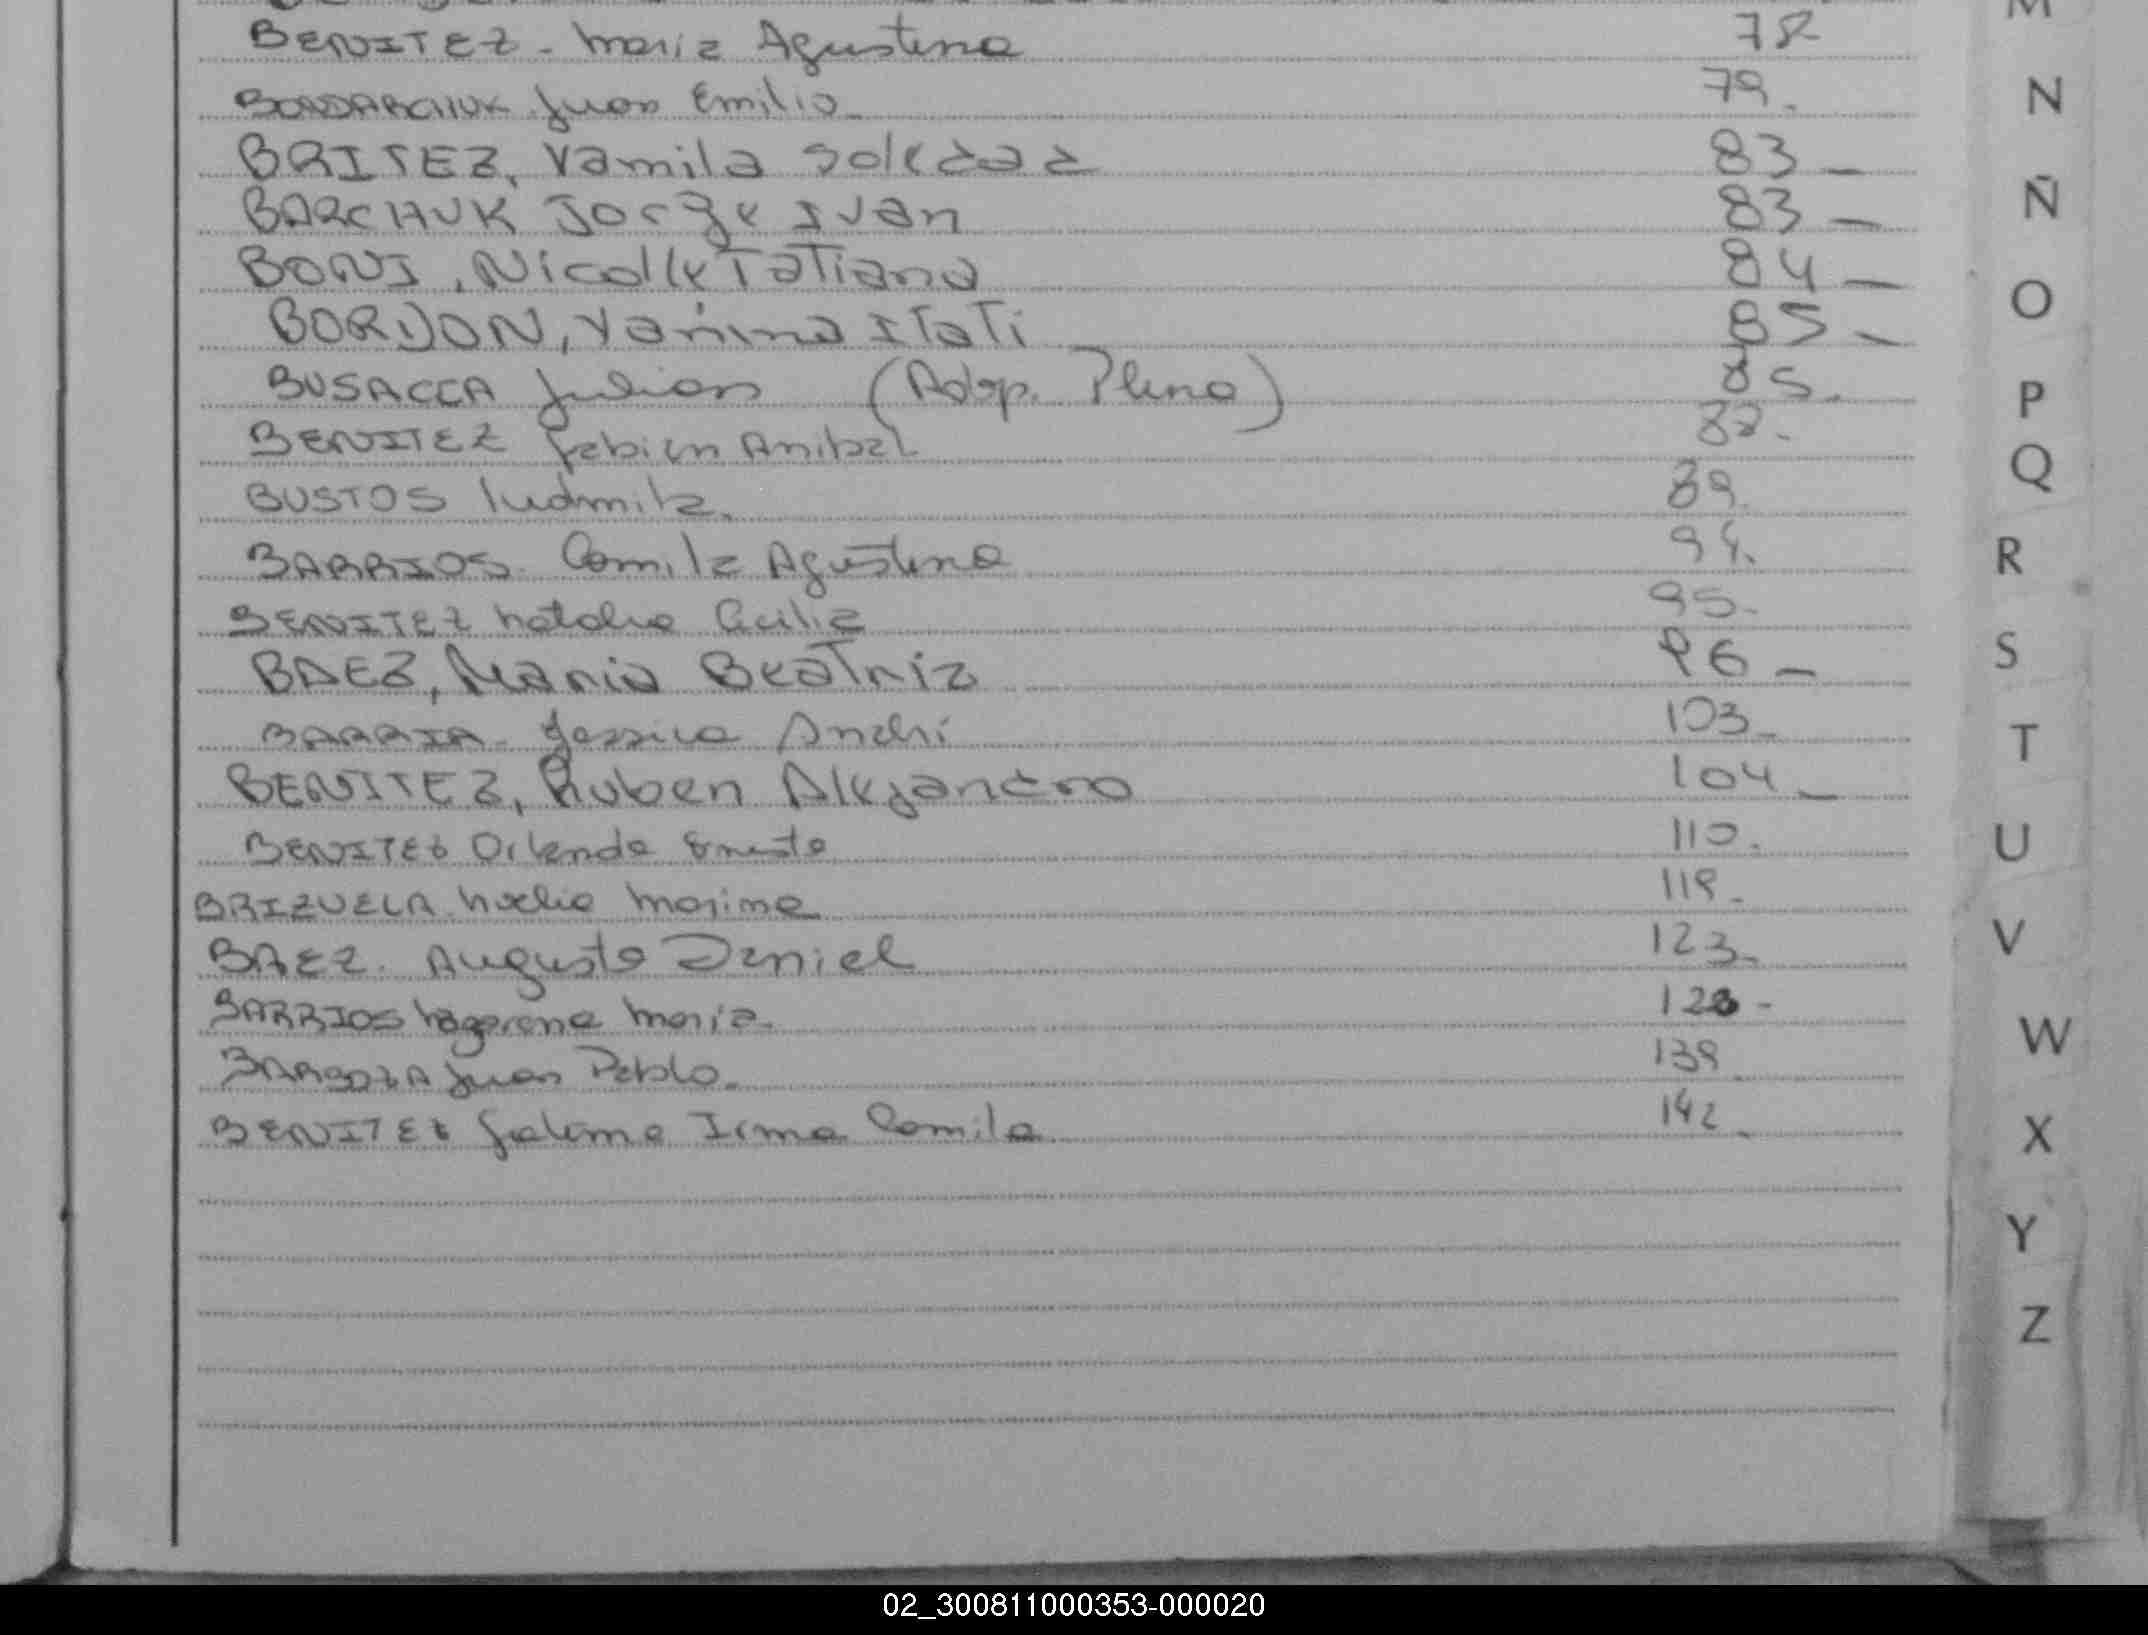 BENITEZ - Maria Agustina 78
BONDARCHUK Juan Emilio 79.
BRITEZ, Yamila Soledad 83 -
BARCHUK Jorge Ivan 83 -
BONI, Nicolle Tatiana 84 -
BORDON, Yanina Itati 85 -
BUSACCA Julian (Adop. Plena) 85.
BENITEZ Fabian Anibal
BUSTOS Ludmila. 89.
BARRIOS. Camila Agustina 94.
BENITEZ Natalia Cecilia 95-
BAEZ, Maria Beatriz 96 -
BARRIA - Jessica 103 -
BENITEZ, Ruben Alejandro 104 -
BENITEZ Orlando Ernesto 110.
BRIZUELA Noelia Marina
BAEZ. Augusto Daniel 123 -
BARRIOS Macarena Maria.
BARBOZA Juan Pablo. 139
BENITEZ Fatima Irma Camila 142.
M
N
Ñ
O
P
Q
R
S
T
U
V
W
X
Y
Z
02_300811000353-000020